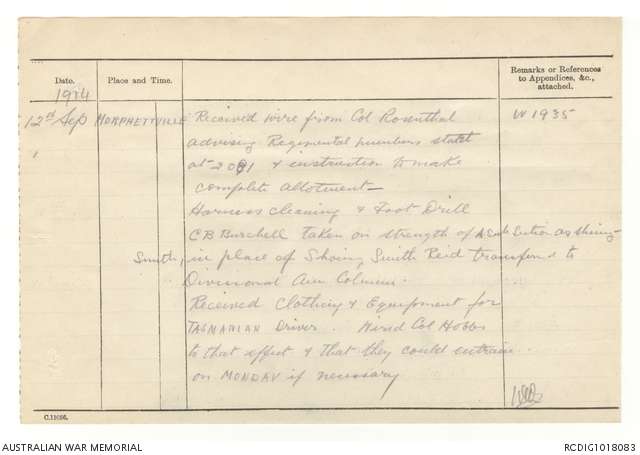 Date.
Place and Time.
Remarks or References
to Appendices, &c.,
attached.
1914
12th Sep MORPHETTVILLE Received wire from Col Rosenthal W 1935
advising Regimental numbers start
at 2091 & instruction to make
complete allotment—
Harness cleaning & Foot Drill
C B Burchell taken on strength of Section as Shoeing-
Smith, in place of Shoeing Smith Reid transferred to
Divisional Am Column.
Received Clothing & Equipment for
TASMANIAN Driver. Wired Col Hobbs
to that effect & that they could entrain
on MONDAY if necessary
C.11056.
AUSTRALIAN WAR MEMORIAL
RCDIG1018083